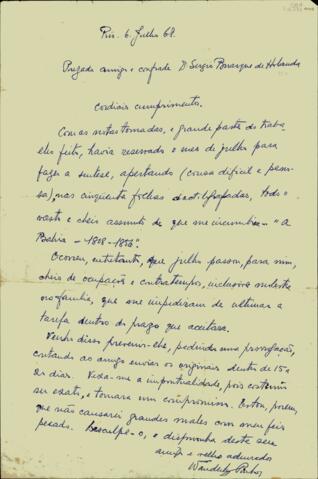 Rio. 6. Julho 68.
Prezado amigo e confrade Dr Sergio Buarque de Holanda
Cordiais cumprimentos.
Com as notas tomadas, e grande parte do traba-
lho feito, havia reservado o mês de julho para
fazer a sintese, apertando (cousa dificil e peno-
sa), nas cinquenta folhas dactilografadas, todo o
vasto e cheio assunto de que me incumbiu - "A
Bahia - 1808-1856".
Ocorreu, entretanto, que julho passou, para mim,
cheio de ocupações e contratempos, inclusive molestia
na familia, que me impediram de ultimar a
tarefa dentro do prazo que aceitara.
Venho disso preveni-lo, pedindo uma prorrogação,
contando ao amigo enviar os originais dentro de 15 a
20 dias. Vexa-me a impontualidade, pois costumo
ser exato, e tomara um compromisso. Estou, porem,
que não causarei grandes males com meu feio
pecado. Desculpe-o, e disponha deste seu
amigo e velho admirador
Wanderley Pinho